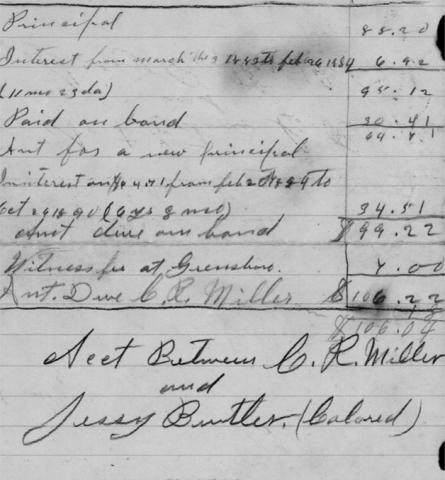 Principal 88.20
Interest from march the 3 1883 to feb 26 1884 6.92
(11 mos 23 da) 95.12
Paid on bond 30.41
Amt for a new principal 64.71
Interest on 64.71 from feb 26 1884 to
Oct 29 1890 (6 ys 8 mos) 34.51
Amt due on bond $99.22
Witness fee at Greensboro. 7.00
Amt. Due C. R. Miller $106.22
$106.04
Acct Between C. R. Miller
and
Jessy Buttler. (Colored)